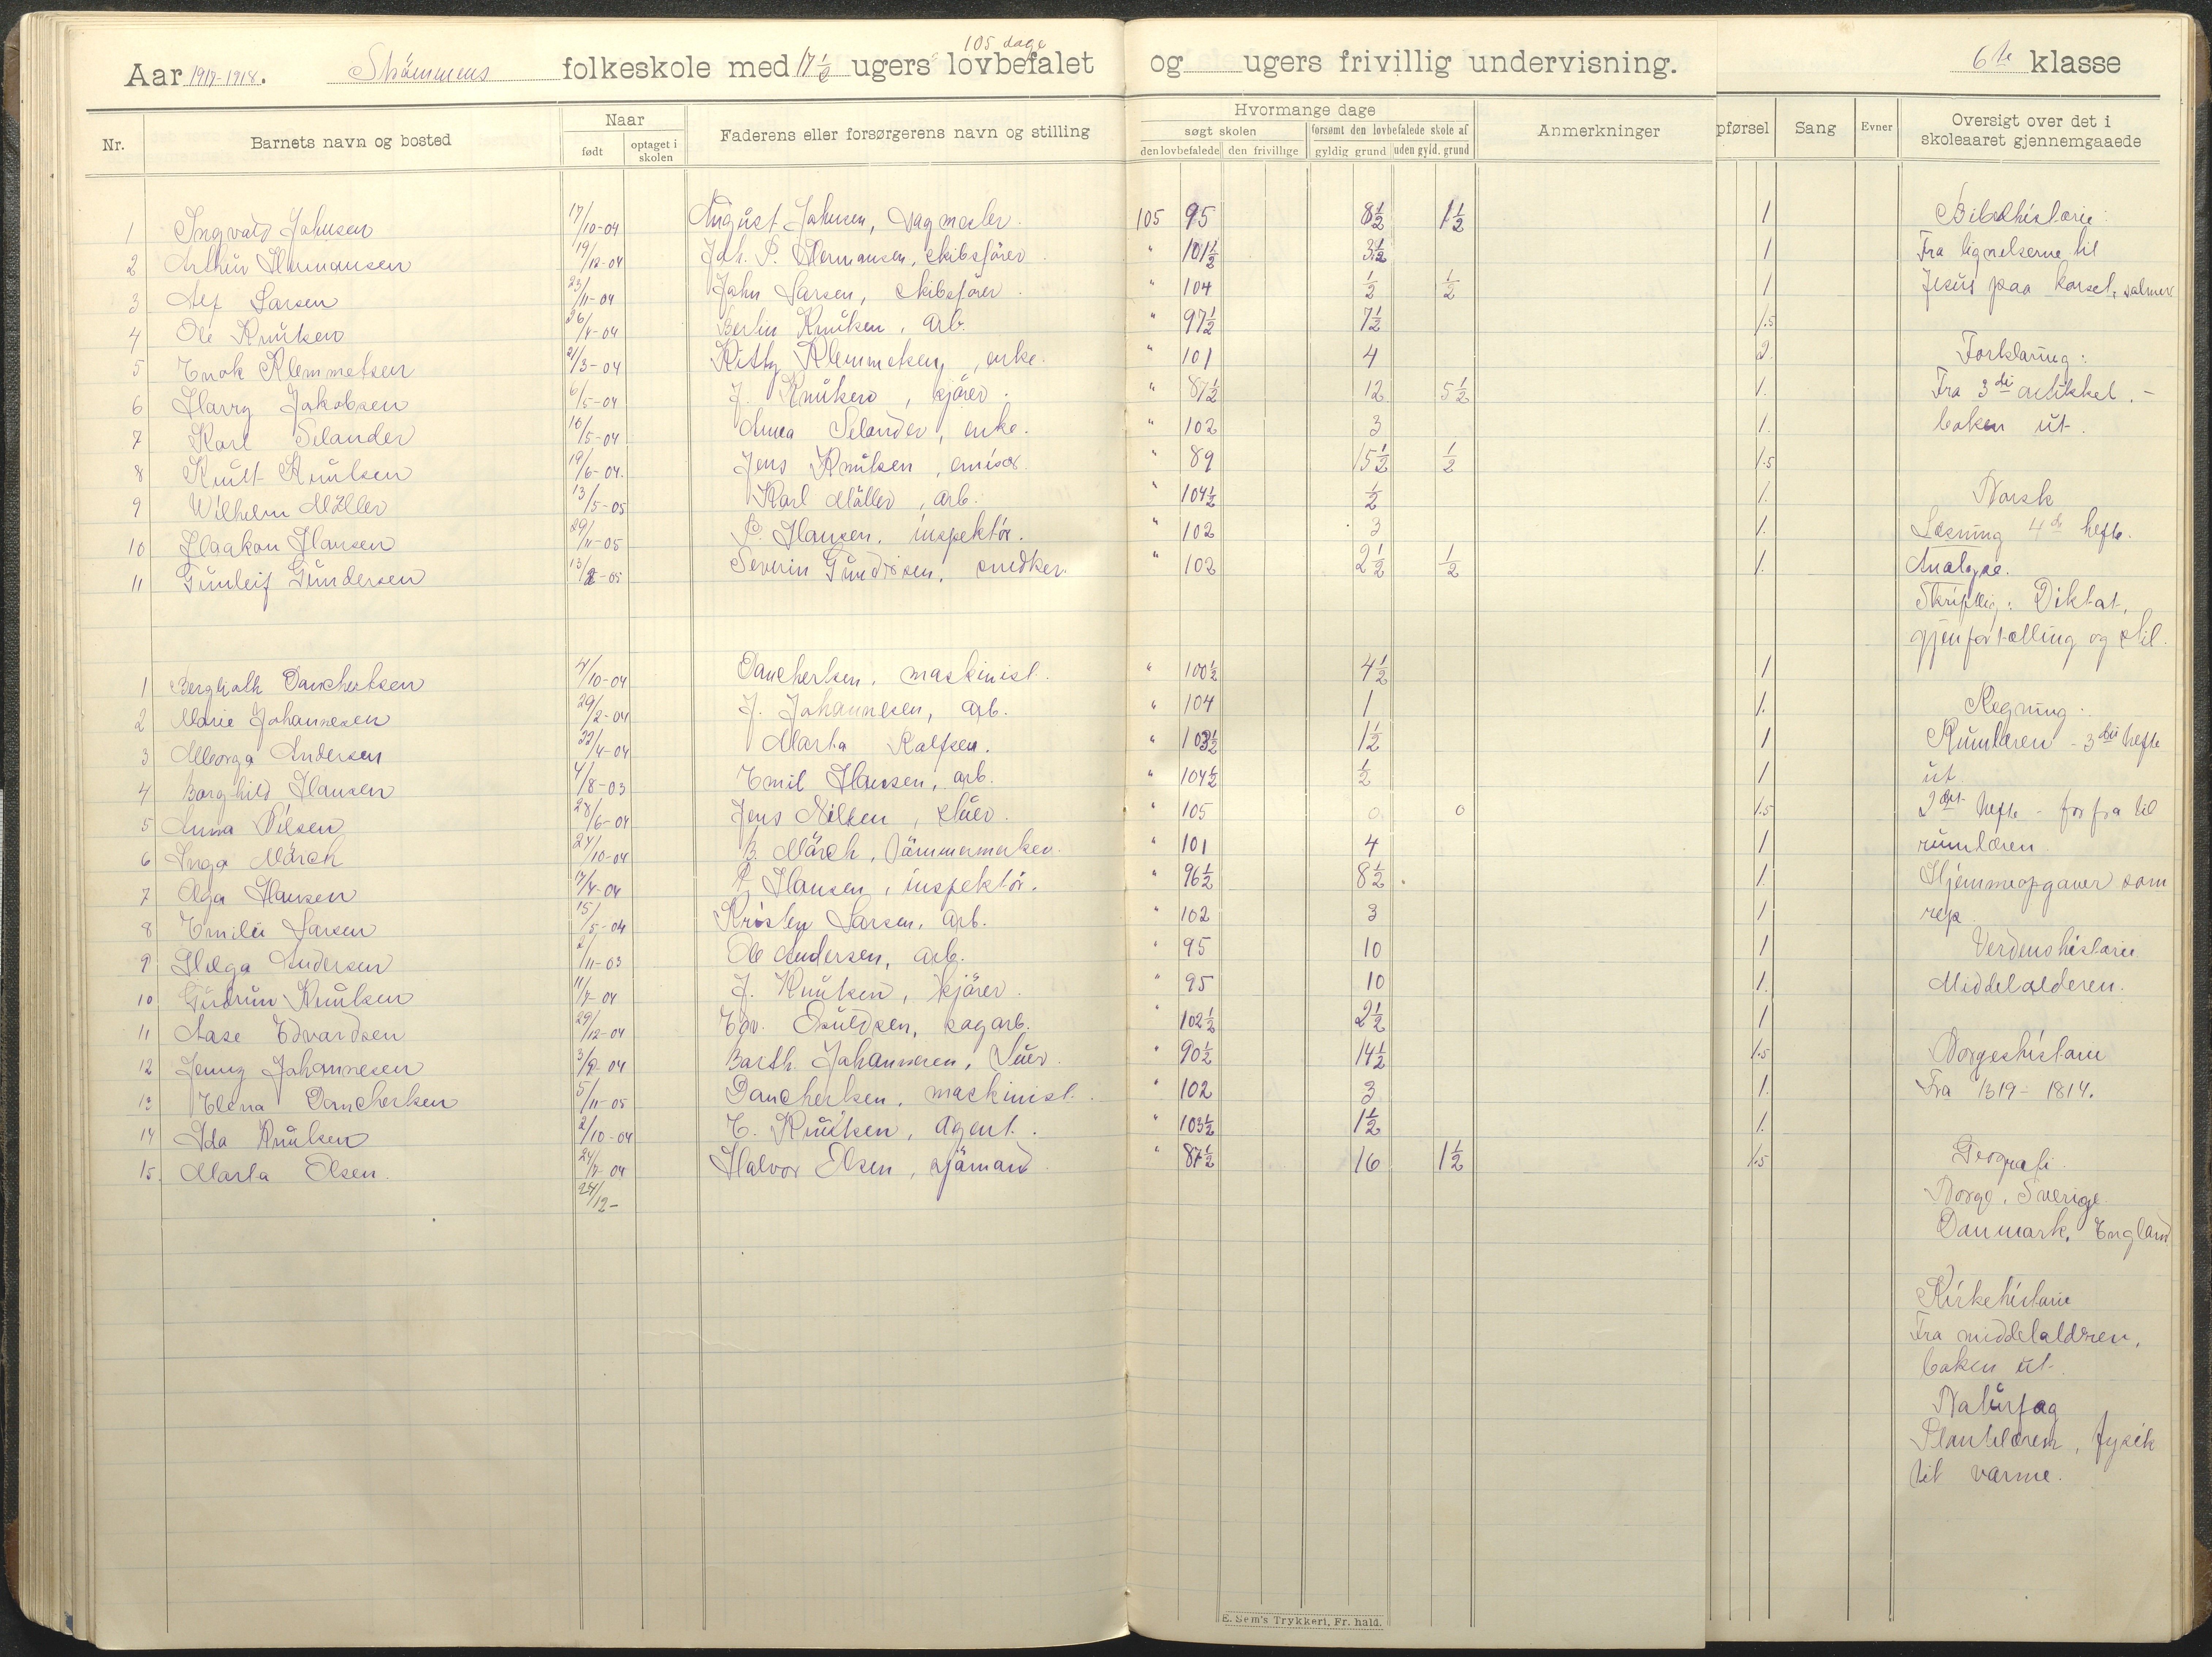 105 dage
Aar 1917-1918. Strömmens folkeskole med 17 1/2 ugers lovbefalet og ugers frivillig undervisning. 6te klasse
Nr. Barnets navn og bosted Naar født optaget i skolen Faderens eller forsørgerens navn og stilling Hvormange dage søgt skolen den lovbefalede den frivillige forsømt den lovbefalede skole af gyldig grund uden gyld. grund Anmerkninger pførsel Sang Evner Oversigt over det i skoleaaret gjennemgaaede
1 Ingvald Johnsen 17/10-04 August Johnsen, dagmester. 105 95 8 1/2 1 1/2 1
2 Arthur Hermansen 19/12-04 Joh. P. Hermansen, skibsfører " 101 1/2 3 1/2 1
3 Alf Larsen 23/11-04 John Larsen, skibsfører. " 104 1/2 1/2 1
4 Ole Knutsen 26/4-04 Bertin Knutsen, arb. " 97 1/2 7 1/2 1.5
5 Enok Klemmetsen 21/3-04 Kitty Klemmetsen, enke. " 101 4 2.
6 Harry Jakobsen 6/5-04 J. Knutsen, kjører. " 87 1/2 12 5 1/2 1.
7 Karl Selander 16/5-04 Anna Selander, enke. " 102 3 1.
8 Knut Knutsen 19/6-04. Jens Knutsen, emisær " 89 15 1/2 1/2 1.5
9 Wilhelm Möller 13/5-05 Karl Möller, arb. " 104 1/2 1/2 1.
10 Haakon Hansen 29/11-05 P. Hansen, inspektör. " 102 3 1.
11 Gunleif Gundersen 13/2-05 Severin Gundersen, snedker. " 102 2 1/2 1/2 1.
1 Berghoth Danchertsen 4/10-04 Danchertsen, maskinist. " 100 1/2 4 1/2 1
2 Marie Johannesen 29/2-04 J. Johannesen, arb. " 104 1 1.
3 Alborga Andersen 22/4-04 Marta Rolfsen. " 103 1/2 1 1/2 1
4 Borghild Hansen 4/8-03 Emil Hansen, arb. " 104 1/2 1/2 1
5 Anna Nilsen 28/6-04 Jens Nilsen, stuer. " 105 0 0 1.5
6 Inga Mörch 24/10-04 B. Mörch, tömmermerker. " 101 4 1
7 Olga Hansen 17/4-04 P. Hansen, inspektör. " 96 1/2 8 1/2 1.
8 Emilie Larsen 15/5-04 Kristen Larsen, arb. " 102 3 1
9 Helga Andersen 2/11-03 Ole Andersen, arb. " 95 10 1
10 Gudrun Knutsen 11/7-04 J. Knutsen, kjører. " 95 10 1.
11 Aase Edvardsen 29/12-04 Edv. Osuldsen, sagarb. " 102 1/2 2 1/2 1
12 Jenny Johannesen 3/9-04 Barth. Johannesen, stuer. " 90 1/2 14 1/2 1.5
13 Elena Danchertsen 5/11-05 Danchertsen, maskinist. " 102 3 1.
14 Ida Knutsen 2/10-04 E. Knutsen, agent. " 103 1/2 1 1/2 1.
15. Marta Olsen. 24/7-04 Halvor Olsen, sjömand " 87 1/2 16 1 1/2 1.5
24/12-
Bibelhistorie:
Fra lignelserne til
Jesus paa korset, salmer
Forklaring:
Fra 3die artikkel. -
boken ut.
Norsk
Læsning 4de hefte.
Analyse.
Skriftlig: Diktat,
gjenfortælling og stil.
Regning:
Rumlæren - 3die hefte
ut.
2det hefte - forfra til
rumlæren
Hjemmeopgaver som
rep.
Verdenshistorie
Middelalderen.
Norgeshistorie
Fra 1319 - 1814.
Geografi.
Norge, Sverige
Danmark, England
Kirkehistorie
Fra middelalderen,
boken ut.
Naturfag
Plantelæren, fysik
til varme.
E. Sem's Trykkeri, Fr. hald.